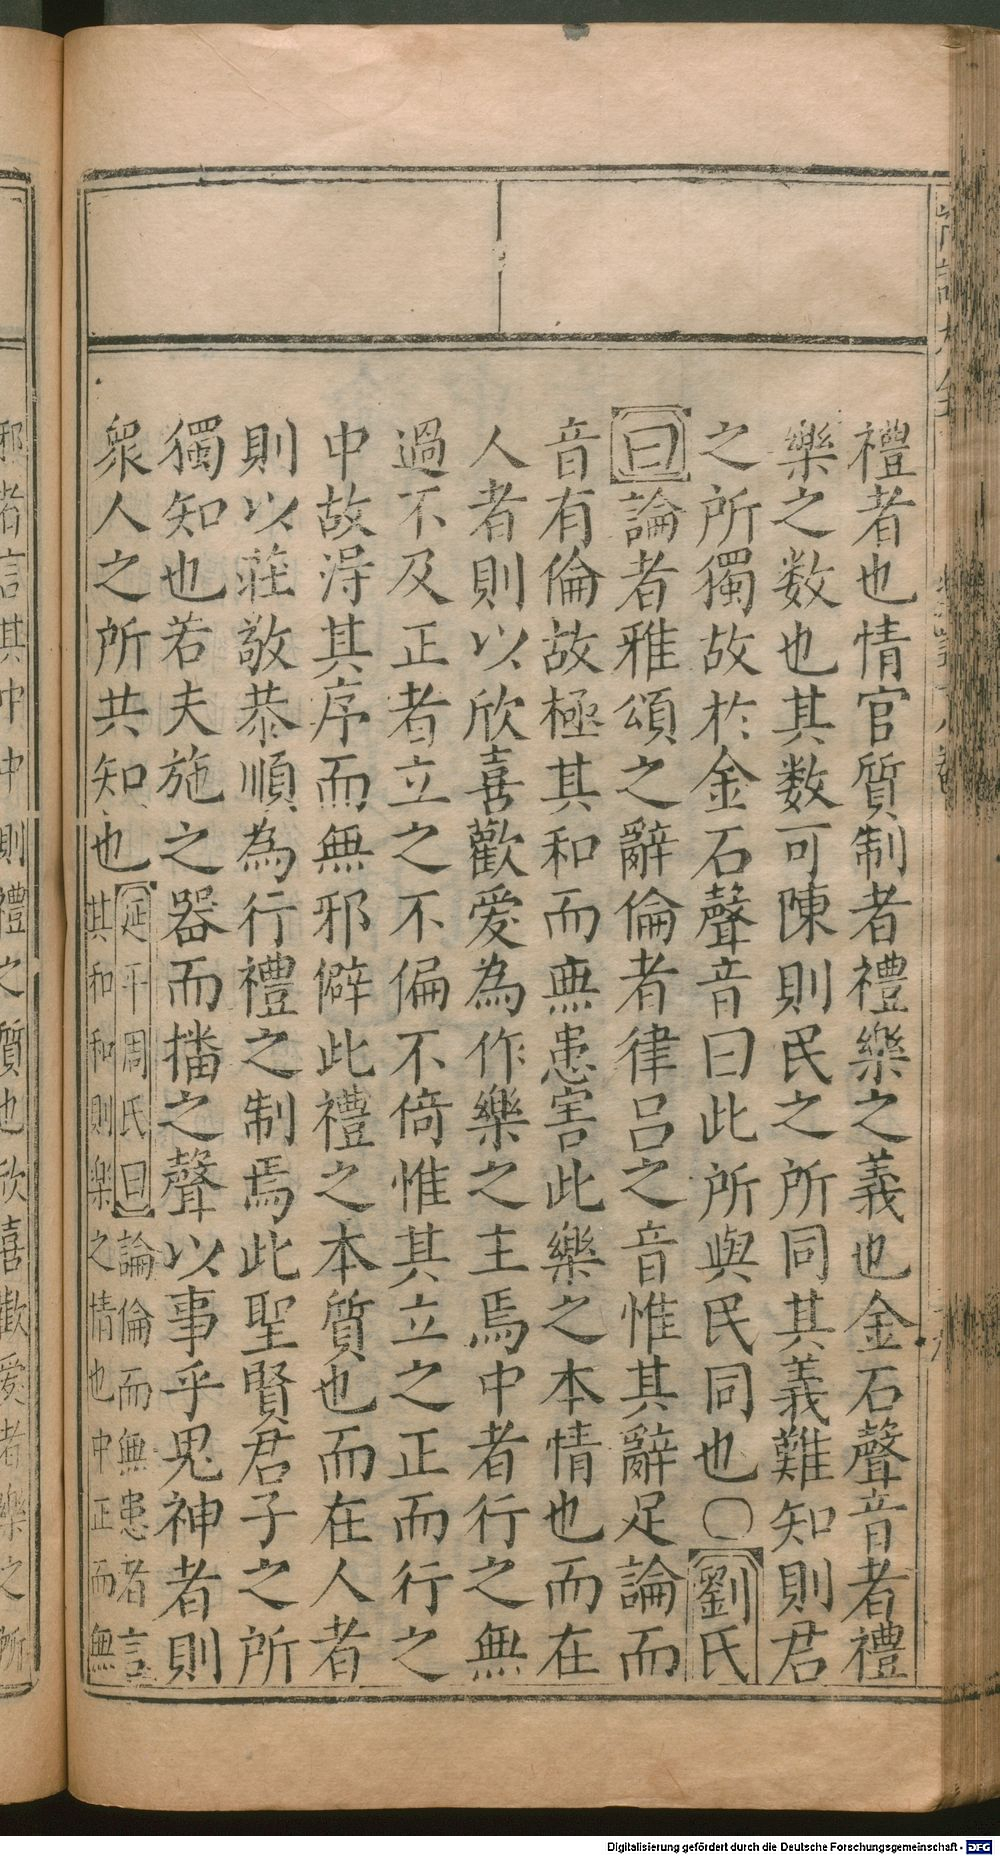 禮者也情官質制者禮樂之義也金石聲音者禮
樂之数也其数可陳則民之所同其義難知則君
之所獨故於金石聲音曰此所與民同也○劉氏
曰論者雅頌之辭倫者律呂之音惟其辭足論而
音有倫故極其和而無患害此樂之本情也而在
人者則以欣喜歡愛為作樂之主焉中者行之無
過不及正者立之不偏不倚惟其立之正而行之
中故淂其序而無邪僻此禮之本質也而在人者
則以莊敬恭順為行禮之制焉此聖賢君子之所
獨知也若夫施之器而播之聲以事乎鬼神者則
衆人之所共知也延平周氏曰論倫而無患者言
其和和則樂之情也中正而無
邪者言其中中則禮之質也欣喜歡愛者樂之所
Digitalisierung gefördert durch die Deutsche Forschungsgemeinschaft - DFG